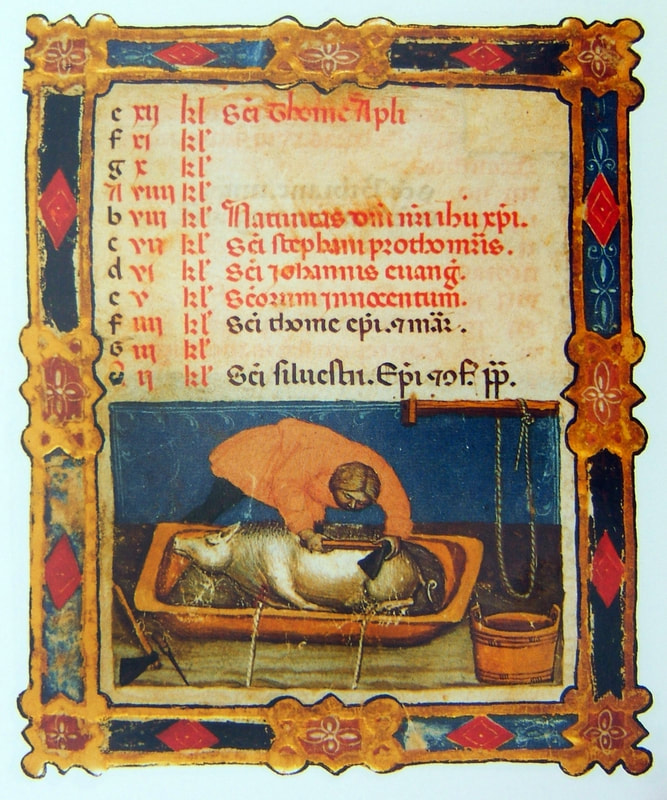 e xij kl' Sci Thome Apli
f xi kl'
g x kl'
A viiii kl'
b viii kl' Natiuitas dni nri ihu xpi.
c vii kl' Sci stephani prothomris.
d vi kl' Sci Johannis euang.
e v kl' Scorum Jnnocentum.
f iiii kl' Sci thome epi. 7 mar.
G iii kl'
ij kl' Sci siluestri. Epi 7 9f. pp.